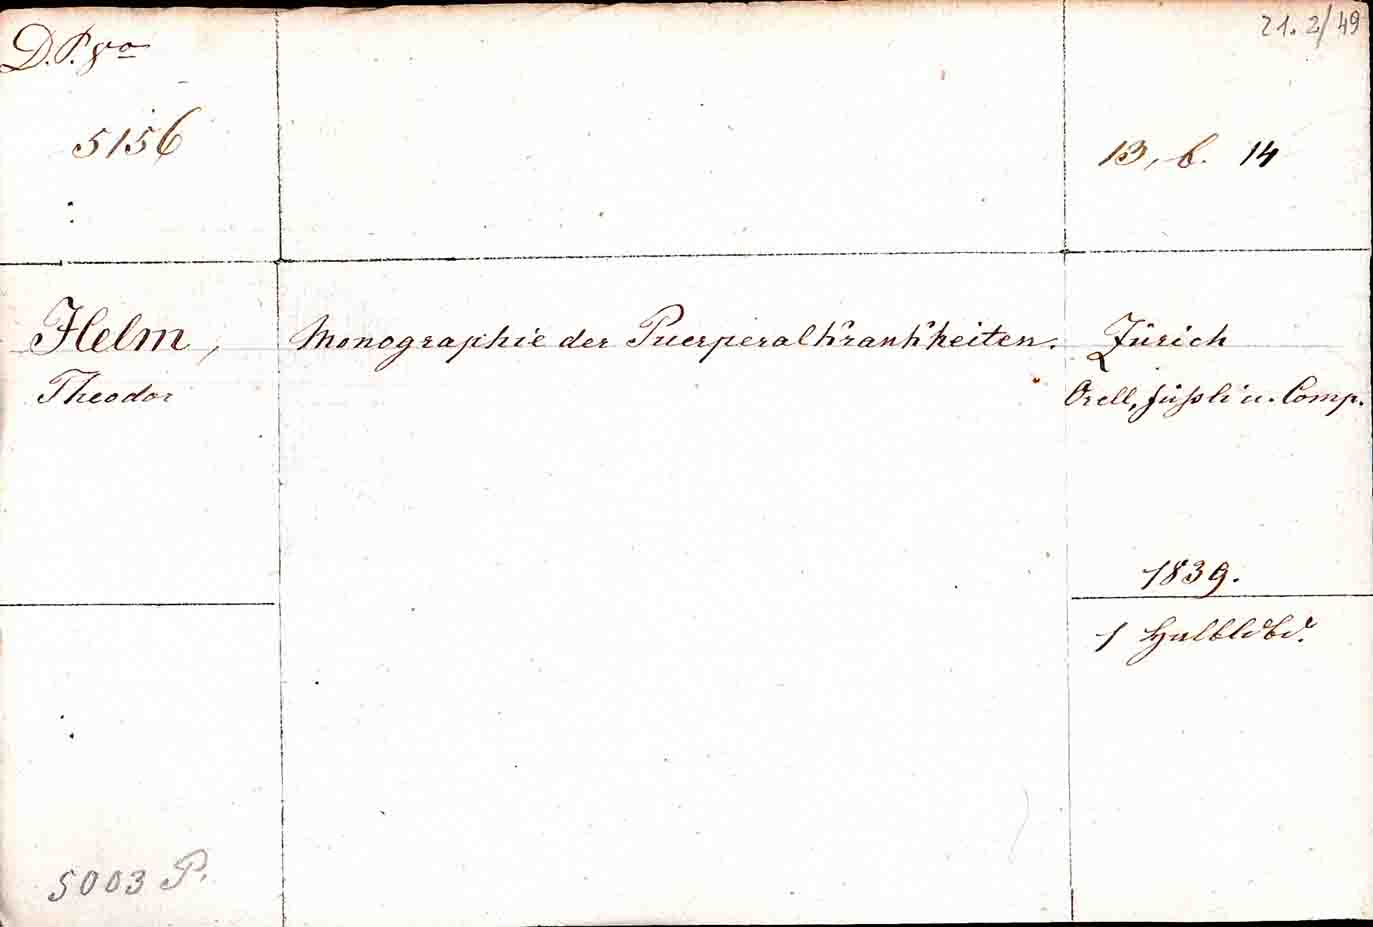 D.P. 8vo
21.2/49
5156
13, b. 14
Helm,
Theodor
Monographie der Puerperalkrankheiten.
Zürich
Orell, Füßli u. Comp.
1839.
1 Halbldbd.
5003 P.